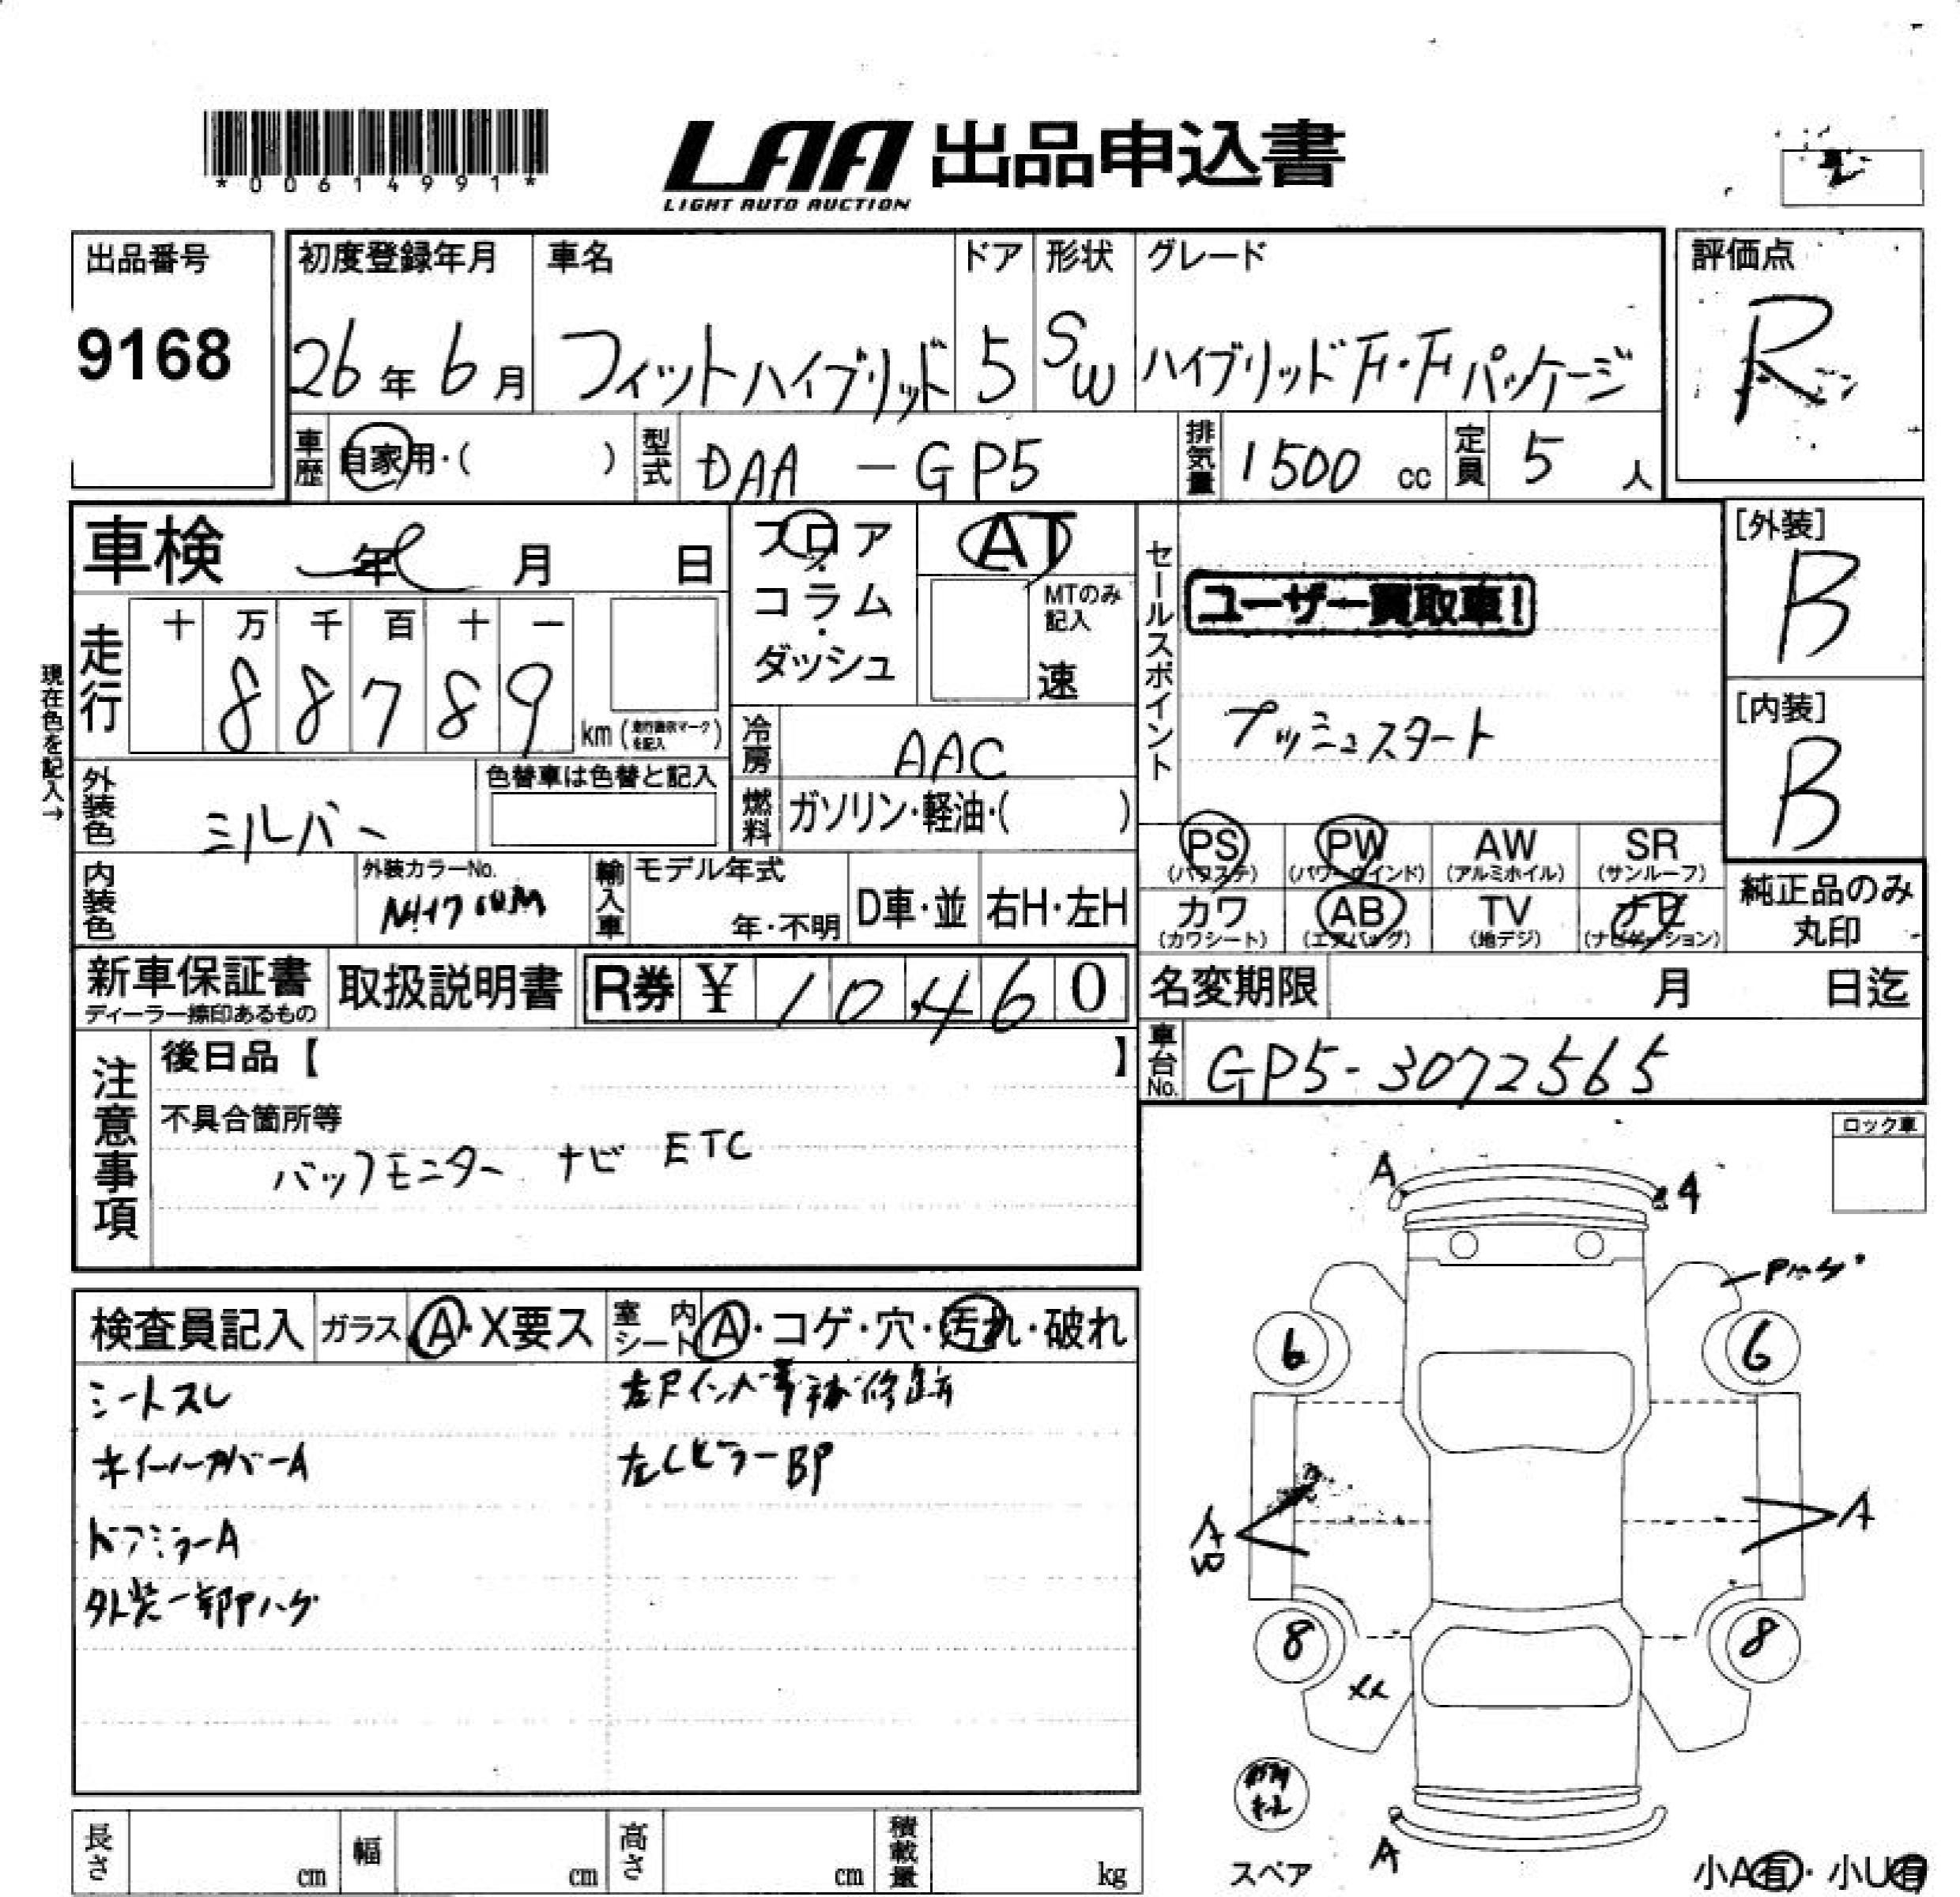 *00614991*
LAA 出品申込書
LIGHT AUTO AUCTION
出品番号
9168
初度登録年月
26年6月
車名
フィットハイブリッド
ドア
5
形状
SW
グレード
ハイブリッドF・Fパッケージ
評価点
R
車歴
自家用・( )
型式
DAA-GP5
排気量
1500 cc
定員
5 人
車検 年 月 日
フロア
コラム
・
ダッシュ
AT
MTのみ記入
速
セールスポイント
ユーザー買取車!
プッシュスタート
[外装]
B
[内装]
B
現在色を記入→
走行
十 万 千 百 十 一
8 8 7 8 9
km
冷房
AAC
燃料
ガソリン・軽油・( )
外装色
シルバー
色替車は色替と記入
内装色
外装カラーNo.
輸入車
モデル年式
年・不明
D車・並
右H・左H
PS
(パワステ)
PW
(パワーウインド)
AW
(アルミホイル)
SR
(サンルーフ)
カワ
(カワシート)
AB
(エアバッグ)
TV
(地デジ)
ナビ
(ナビゲーション)
純正品のみ
丸印
新車保証書
ディーラー捺印あるもの
取扱説明書
R券 ¥ 10,460
名変期限 月 日迄
車台No.
GP5-3072565
注意事項
後日品【 】
不具合箇所等
バックモニター ナビ ETC
ロック車
検査員記入
ガラス
A・X要ス
室内シート
A・コゲ・穴・汚れ・破れ
シートスレ
ホイールカバーA
ドアミラーA
外装一部Pハゲ
左Rインパネ補修跡
左CピラーBP
A
4
Pハゲ
6
6
A
A
8
8
XX
A
スペア
小A有・小U有
長さ cm
幅 cm
高さ cm
積載量 kg